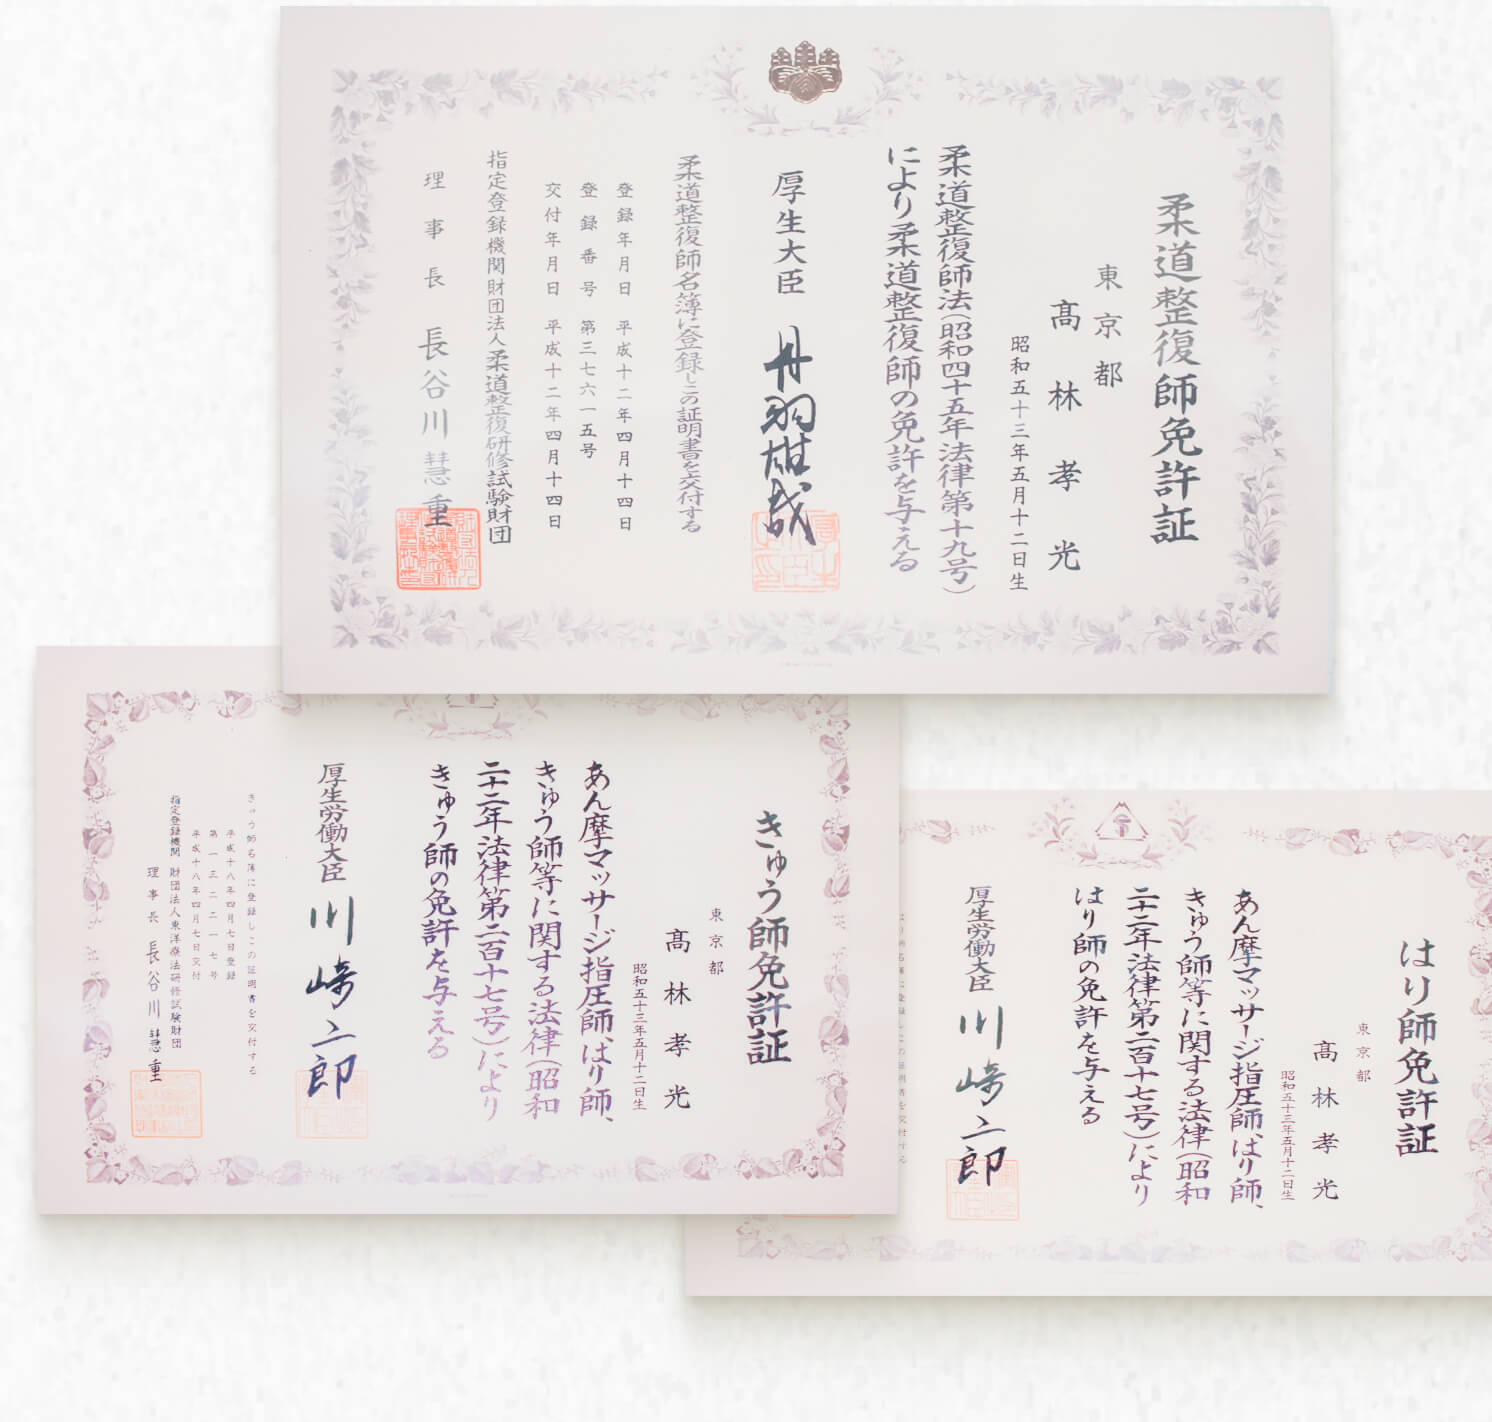 柔道整復師免許証
東京都
髙林孝光
昭和五十三年五月十二日生
柔道整復師法（昭和四十五年法律第十九号）
により柔道整復師の免許を与える
厚生大臣 丹羽雄哉
柔道整復師名簿に登録しこの証明書を交付する
登録年月日 平成十二年四月十四日
登録番号 第三七六一五号
交付年月日 平成十二年四月十四日
指定登録機関財団法人柔道整復研修試験財団
理事長 長谷川慧重
きゅう師免許証
東京都
髙林孝光
昭和五十三年五月十二日生
あん摩マッサージ指圧師、はり師、
きゅう師等に関する法律（昭和
二十二年法律第二百十七号）により
きゅう師の免許を与える
厚生労働大臣 川崎二郎
きゅう師名簿に登録しこの証明書を交付する
平成十八年四月七日登録
第一三二二一七号
平成十八年四月七日交付
指定登録機関 財団法人東洋療法研修試験財団
理事長 長谷川慧重
はり師免許証
東京都
髙林孝光
昭和五十三年五月十二日生
あん摩マッサージ指圧師、はり師、
きゅう師等に関する法律（昭和
二十二年法律第二百十七号）により
はり師の免許を与える
厚生労働大臣 川崎二郎
はり師名簿に登録しこの証明書を交付する